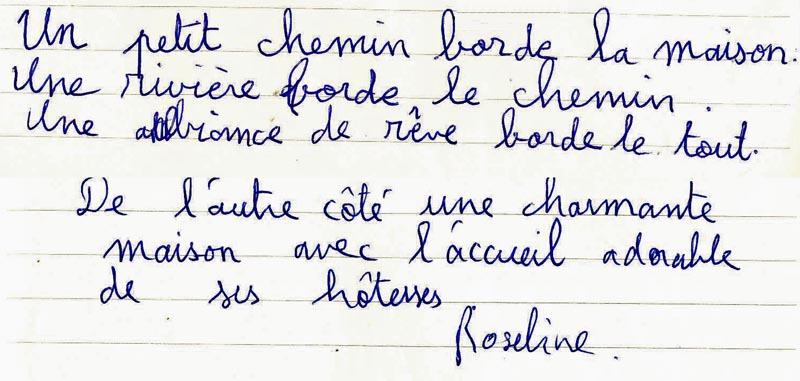 Un petit chemin borde la maison.
Une rivière borde le chemin.
Une ambiance de rêve borde le tout.
De l'autre côté une charmante
maison avec l'accueil adorable
de ses hôtesses
Roseline.